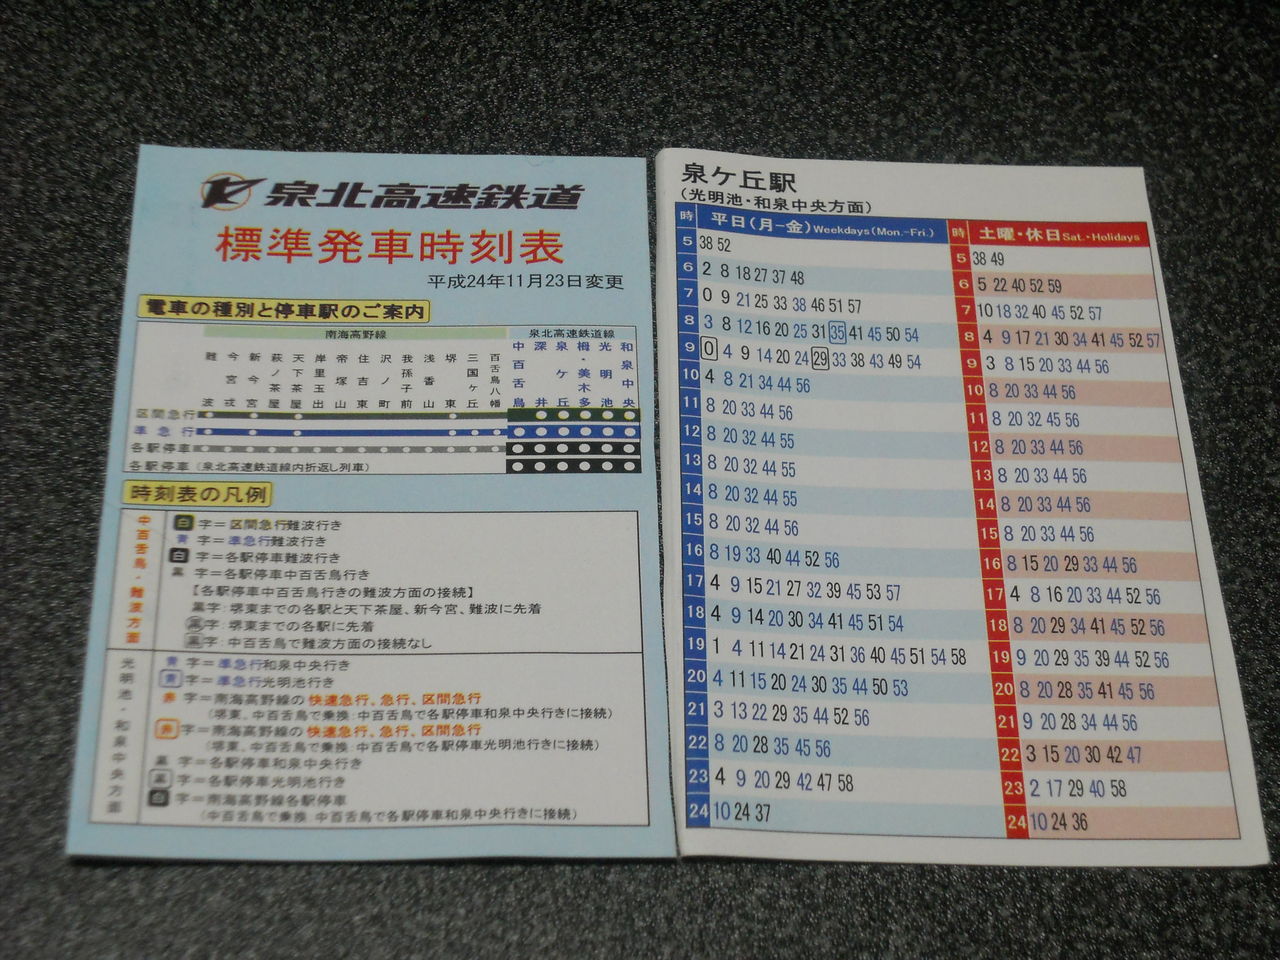 泉北高速鉄道
標準発車時刻表
平成24年11月23日変更
電車の種別と停車駅のご案内
南海高野線 泉北高速鉄道線
難波 今宮戎 新今宮 萩ノ茶屋 天下茶屋 岸里玉出 帝塚山 住吉東 沢ノ町 我孫子前 浅香山 堺東 三国ヶ丘 百舌鳥八幡 中百舌鳥 深井 泉ケ丘 栂・美木多 光明池 和泉中央
区間急行
準急行
各駅停車
各駅停車(泉北高速鉄道線内折返し列車)
時刻表の凡例
中百舌鳥・難波方面
白 字=区間急行難波行き
青 字=準急行難波行き
白 字=各駅停車難波行き
黒 字=各駅停車中百舌鳥行き
【各駅停車中百舌鳥行きの難波方面の接続】
黒字:堺東までの各駅と天下茶屋、新今宮、難波に先着
黒字:堺東までの各駅に先着
黒字:中百舌鳥で難波方面の接続なし
光明池・和泉中央方面
青 字=準急行和泉中央行き
青 字=準急行光明池行き
赤 字=南海高野線の快速急行、急行、区間急行
(堺東、中百舌鳥で乗換:中百舌鳥で各駅停車和泉中央行きに接続)
赤 字=南海高野線の快速急行、急行、区間急行
(堺東、中百舌鳥で乗換:中百舌鳥で各駅停車光明池行きに接続)
黒 字=各駅停車和泉中央行き
黒 字=各駅停車光明池行き
白 字=南海高野線各駅停車
(中百舌鳥で乗換:中百舌鳥で各駅停車和泉中央行きに接続)
泉ケ丘駅
(光明池・和泉中央方面)
時 平日(月-金)Weekdays(Mon.-Fri.)
5 38 52
6 2 8 18 27 37 48
7 0 9 21 25 33 38 46 51 57
8 3 8 12 16 20 25 31 35 41 45 50 54
9 0 4 9 14 20 24 29 33 38 43 49 54
10 4 8 21 34 44 56
11 8 20 33 44 56
12 8 20 32 44 55
13 8 20 32 44 55
14 8 20 32 44 55
15 8 20 32 44 56
16 8 19 33 40 44 52 56
17 4 9 15 21 27 32 39 45 53 57
18 4 9 14 20 30 34 41 45 51 54
19 1 4 11 14 21 24 31 36 40 45 51 54 58
20 4 11 15 20 24 30 35 44 50 53
21 3 13 22 29 35 44 52 56
22 8 20 28 35 45 56
23 4 9 20 29 42 47 58
24 10 24 37
時 土曜・休日Sat.・Holidays
5 38 49
6 5 22 40 52 59
7 10 18 32 40 45 52 57
8 4 9 17 21 30 34 41 45 52 57
9 3 8 15 20 33 44 56
10 8 20 33 44 56
11 8 20 32 45 56
12 8 20 33 44 56
13 8 20 33 44 56
14 8 20 33 44 56
15 8 20 33 44 56
16 8 15 20 29 33 44 56
17 4 8 16 20 33 44 52 56
18 8 20 29 34 41 45 52 56
19 9 20 29 35 39 44 52 56
20 8 20 28 35 41 45 56
21 9 20 28 34 44 56
22 3 15 20 30 42 47
23 2 17 29 40 58
24 10 24 36